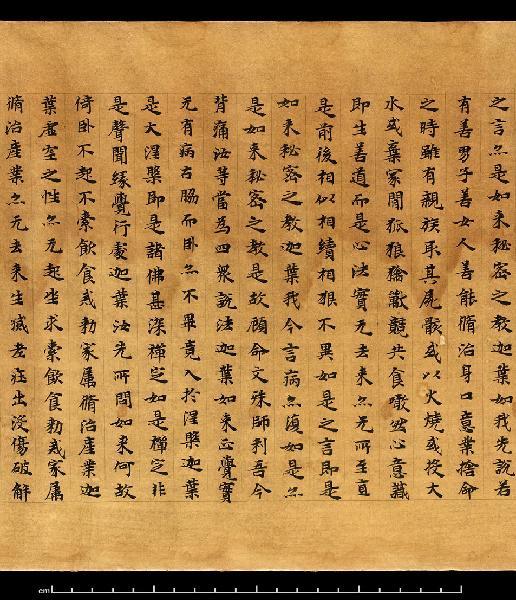 之言亦是如來秘密之教迦葉如我先說若
有善男子善女人善能脩治身口意業捨命
之時雖有親族取其屍骸或以火燒或投大
水或棄冢間狐狼禽獸競共食噉然心意識
即生善道而是心法實无去來亦无所至直
是前後相似相續相貌不異如是之言即是
如來秘密之教迦葉我今言病亦復如是亦
是如來秘密之教是故顧命文殊師利吾今
背痛汝等當為四衆說法迦葉如來正覺實
无有病右脇而卧亦不畢竟入於涅槃迦葉
是大涅槃即是諸佛甚深禪定如是禪定非
是聲聞緣覺行處迦葉汝先所問如來何故
倚卧不起不索飲食戒勑家属脩治產業迦
葉虛空之性亦无起坐求索飲食勑戒家属
脩治產業亦无去來生滅老壯出沒傷破解
cm